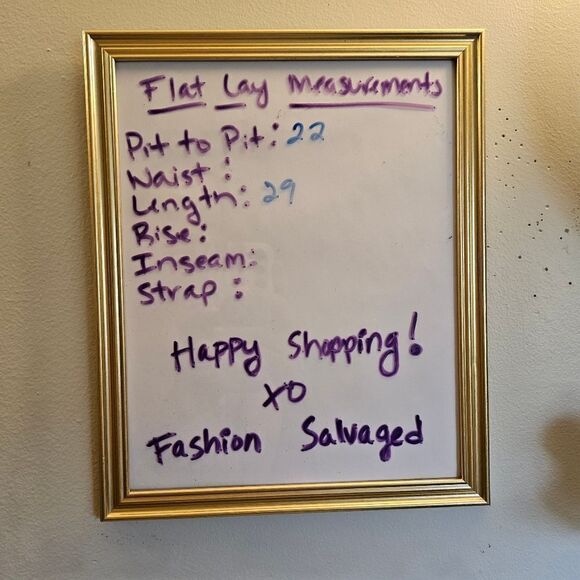 Flat Lay Measurements
Pit to Pit: 22
Waist:
Length: 29
Rise:
Inseam:
Strap:
Happy Shopping!
XO
Fashion Salvaged